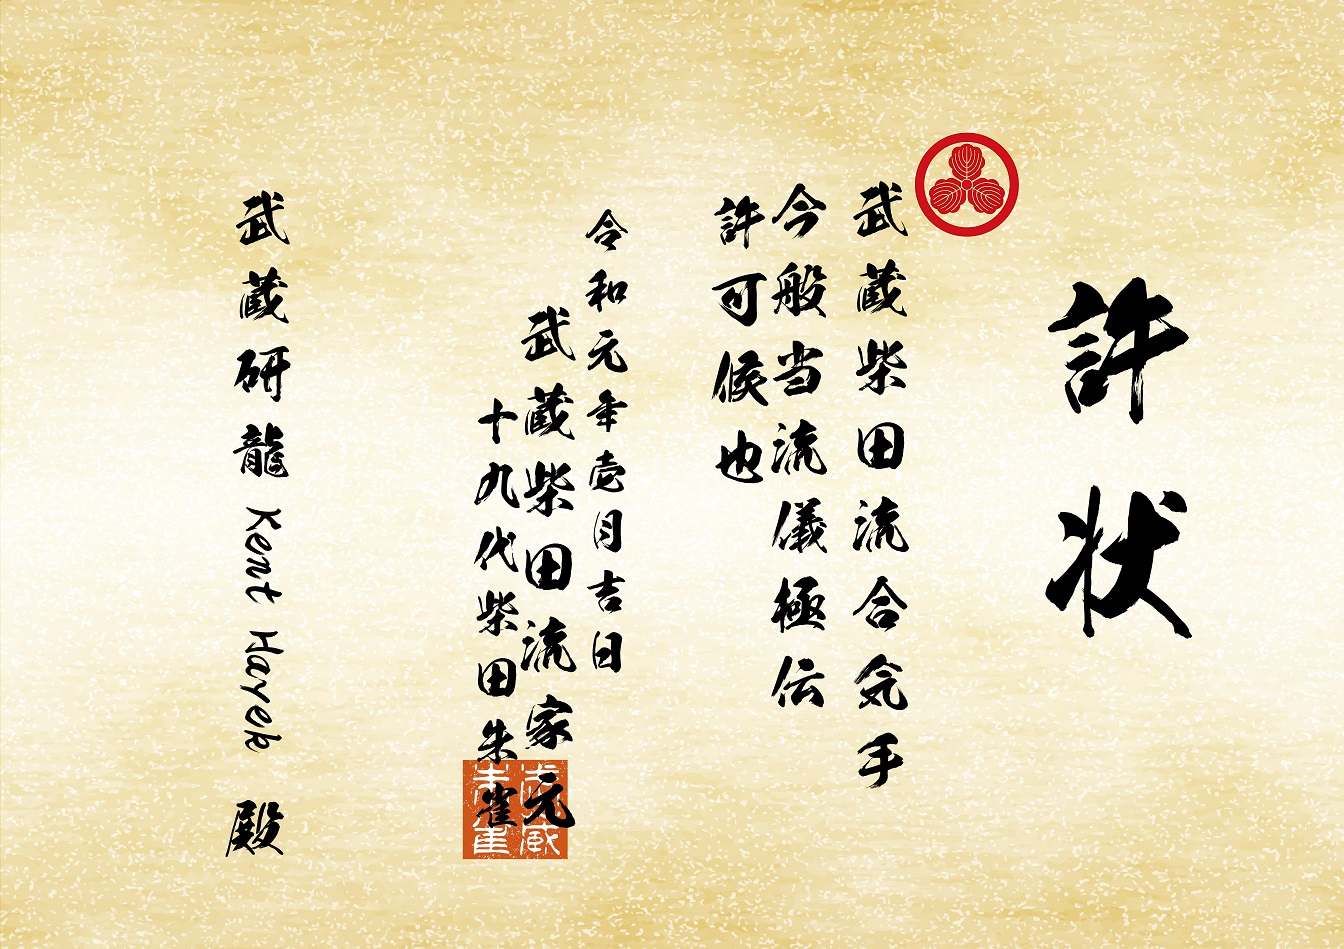 許状
武蔵柴田流合気手
今般当流儀極伝
許可候也
令和元年壱月吉日
武蔵柴田流家元
十九代柴田朱雀
武蔵
朱雀
武蔵研龍 Kent Hayek 殿